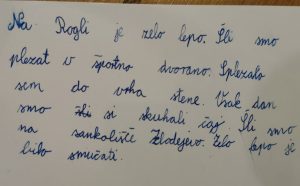 Na Rogli je zelo lepo. Šli smo
plezat v športno dvorano. Splezala
sem do vrha stene. Vsak dan
smo si skuhali čaj. Šli smo
na sankališče Zlodejevo. Zelo lepo je
bilo smučati.